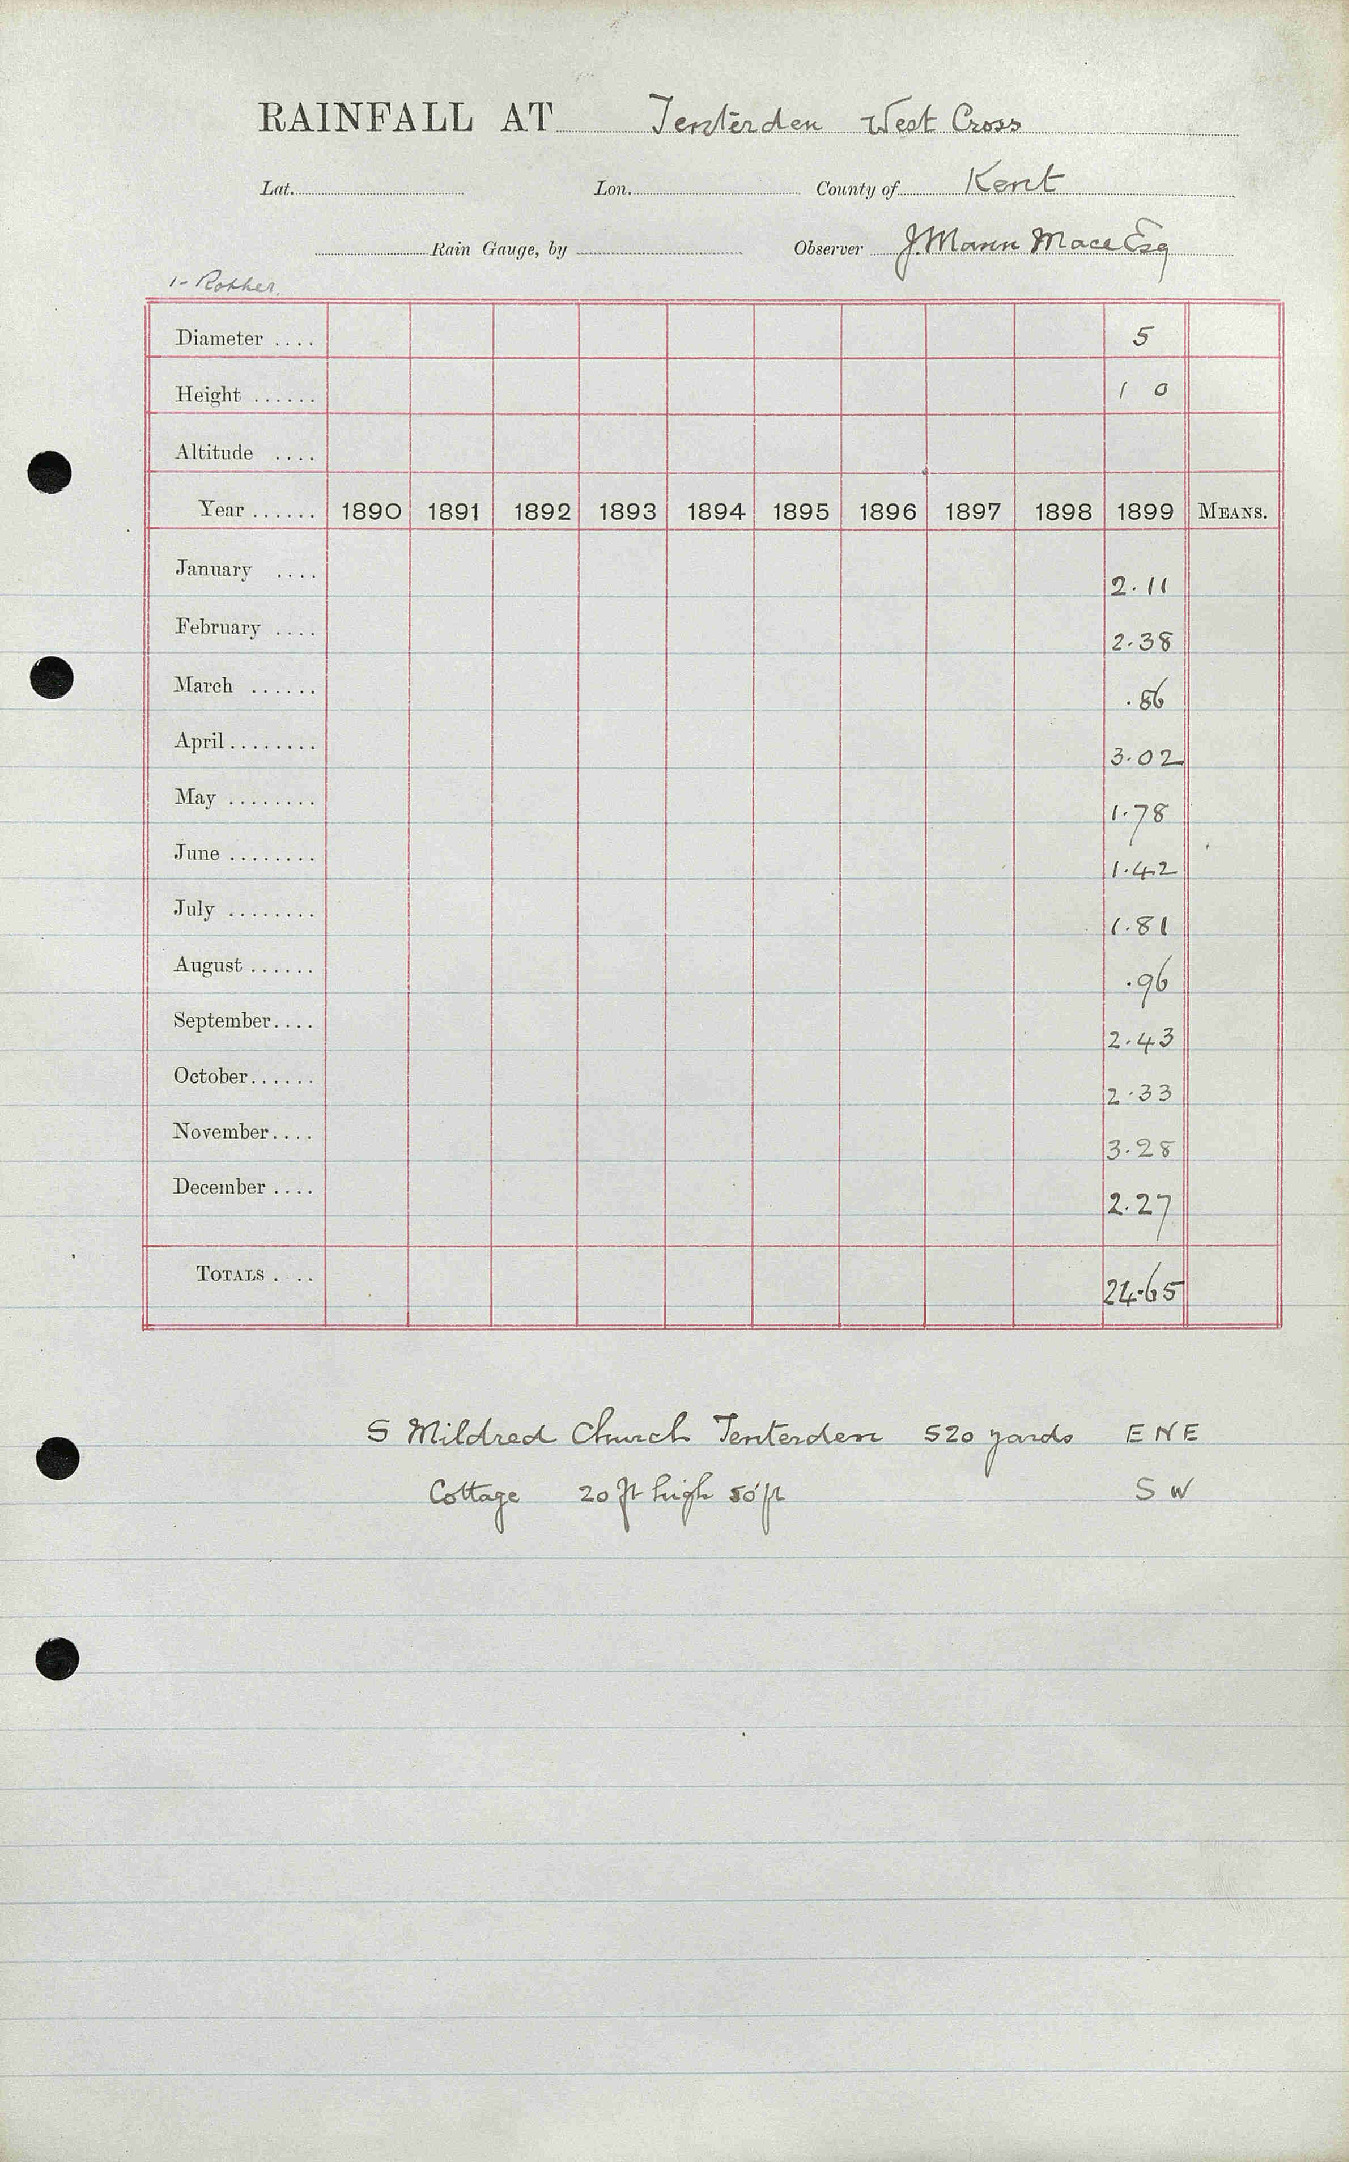 RAINFALL AT Tenterden West Cross
Lat. Lon. County of Kent
Rain Gauge, by Observer J. Mann Mace Esq
1 - Rother
Diameter .... 5
Height ...... 1 0
Altitude ....
Year ...... 1890 1891 1892 1893 1894 1895 1896 1897 1898 1899 MEANS.
January .... 2.11
February .... 2.38
March ...... .86
April ........ 3.02
May ........ 1.78
June ........ 1.42
July ........ 1.81
August ...... .96
September.... 2.43
October...... 2.33
November.... 3.28
December .... 2.27
TOTALS . .. 24.65
S Mildred Church Tenterden 520 yards ENE
Cottage 20 ft high 50 ft SW